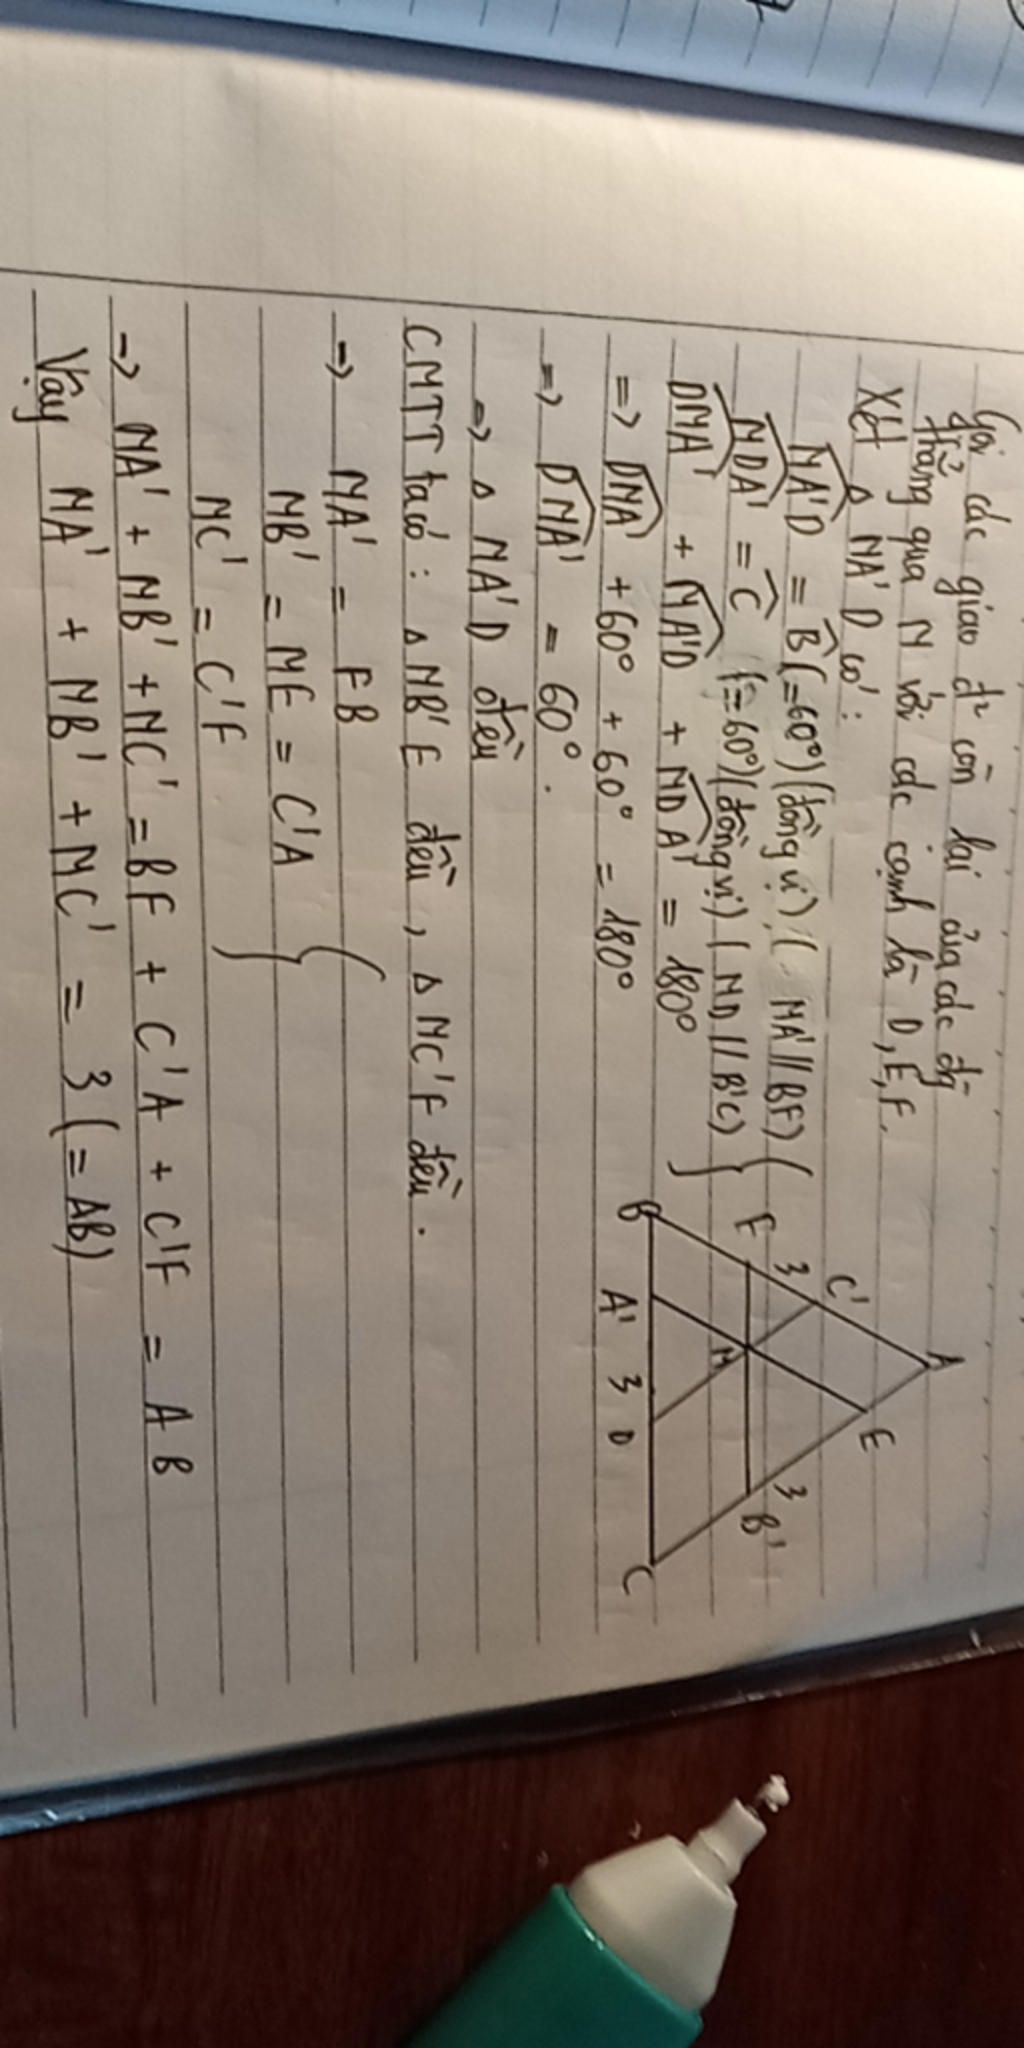 Gọi các giao đ² còn lại của các đg
thẳng qua M với các cạnh là D, E, F.
Xét △ MA'D có:
MA'D = B (=60°) (đồng vị) ( MA' // BF)
MDA' = C (=60°) (đồng vị) ( MD // B'C)
DMA' + MA'D + MDA' = 180°
=> DMA' + 60° + 60° = 180°
=> DMA' = 60°.
=> △ MA'D đều
CMTT ta có: △ MB'E đều, △ MC'F đều.
=> MA' = FB
MB' = ME = C'A
MC' = C'F
=> MA' + MB' + MC' = BF + C'A + C'F = AB
Vậy MA' + MB' + MC' = 3 (= AB)
A
C'
E
3
F
3
B'
M
B
A'
3
D
C